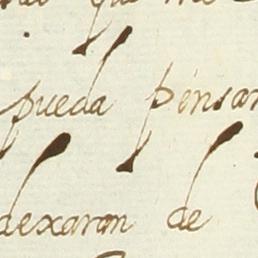 que me
pueda pensar
dexaron de